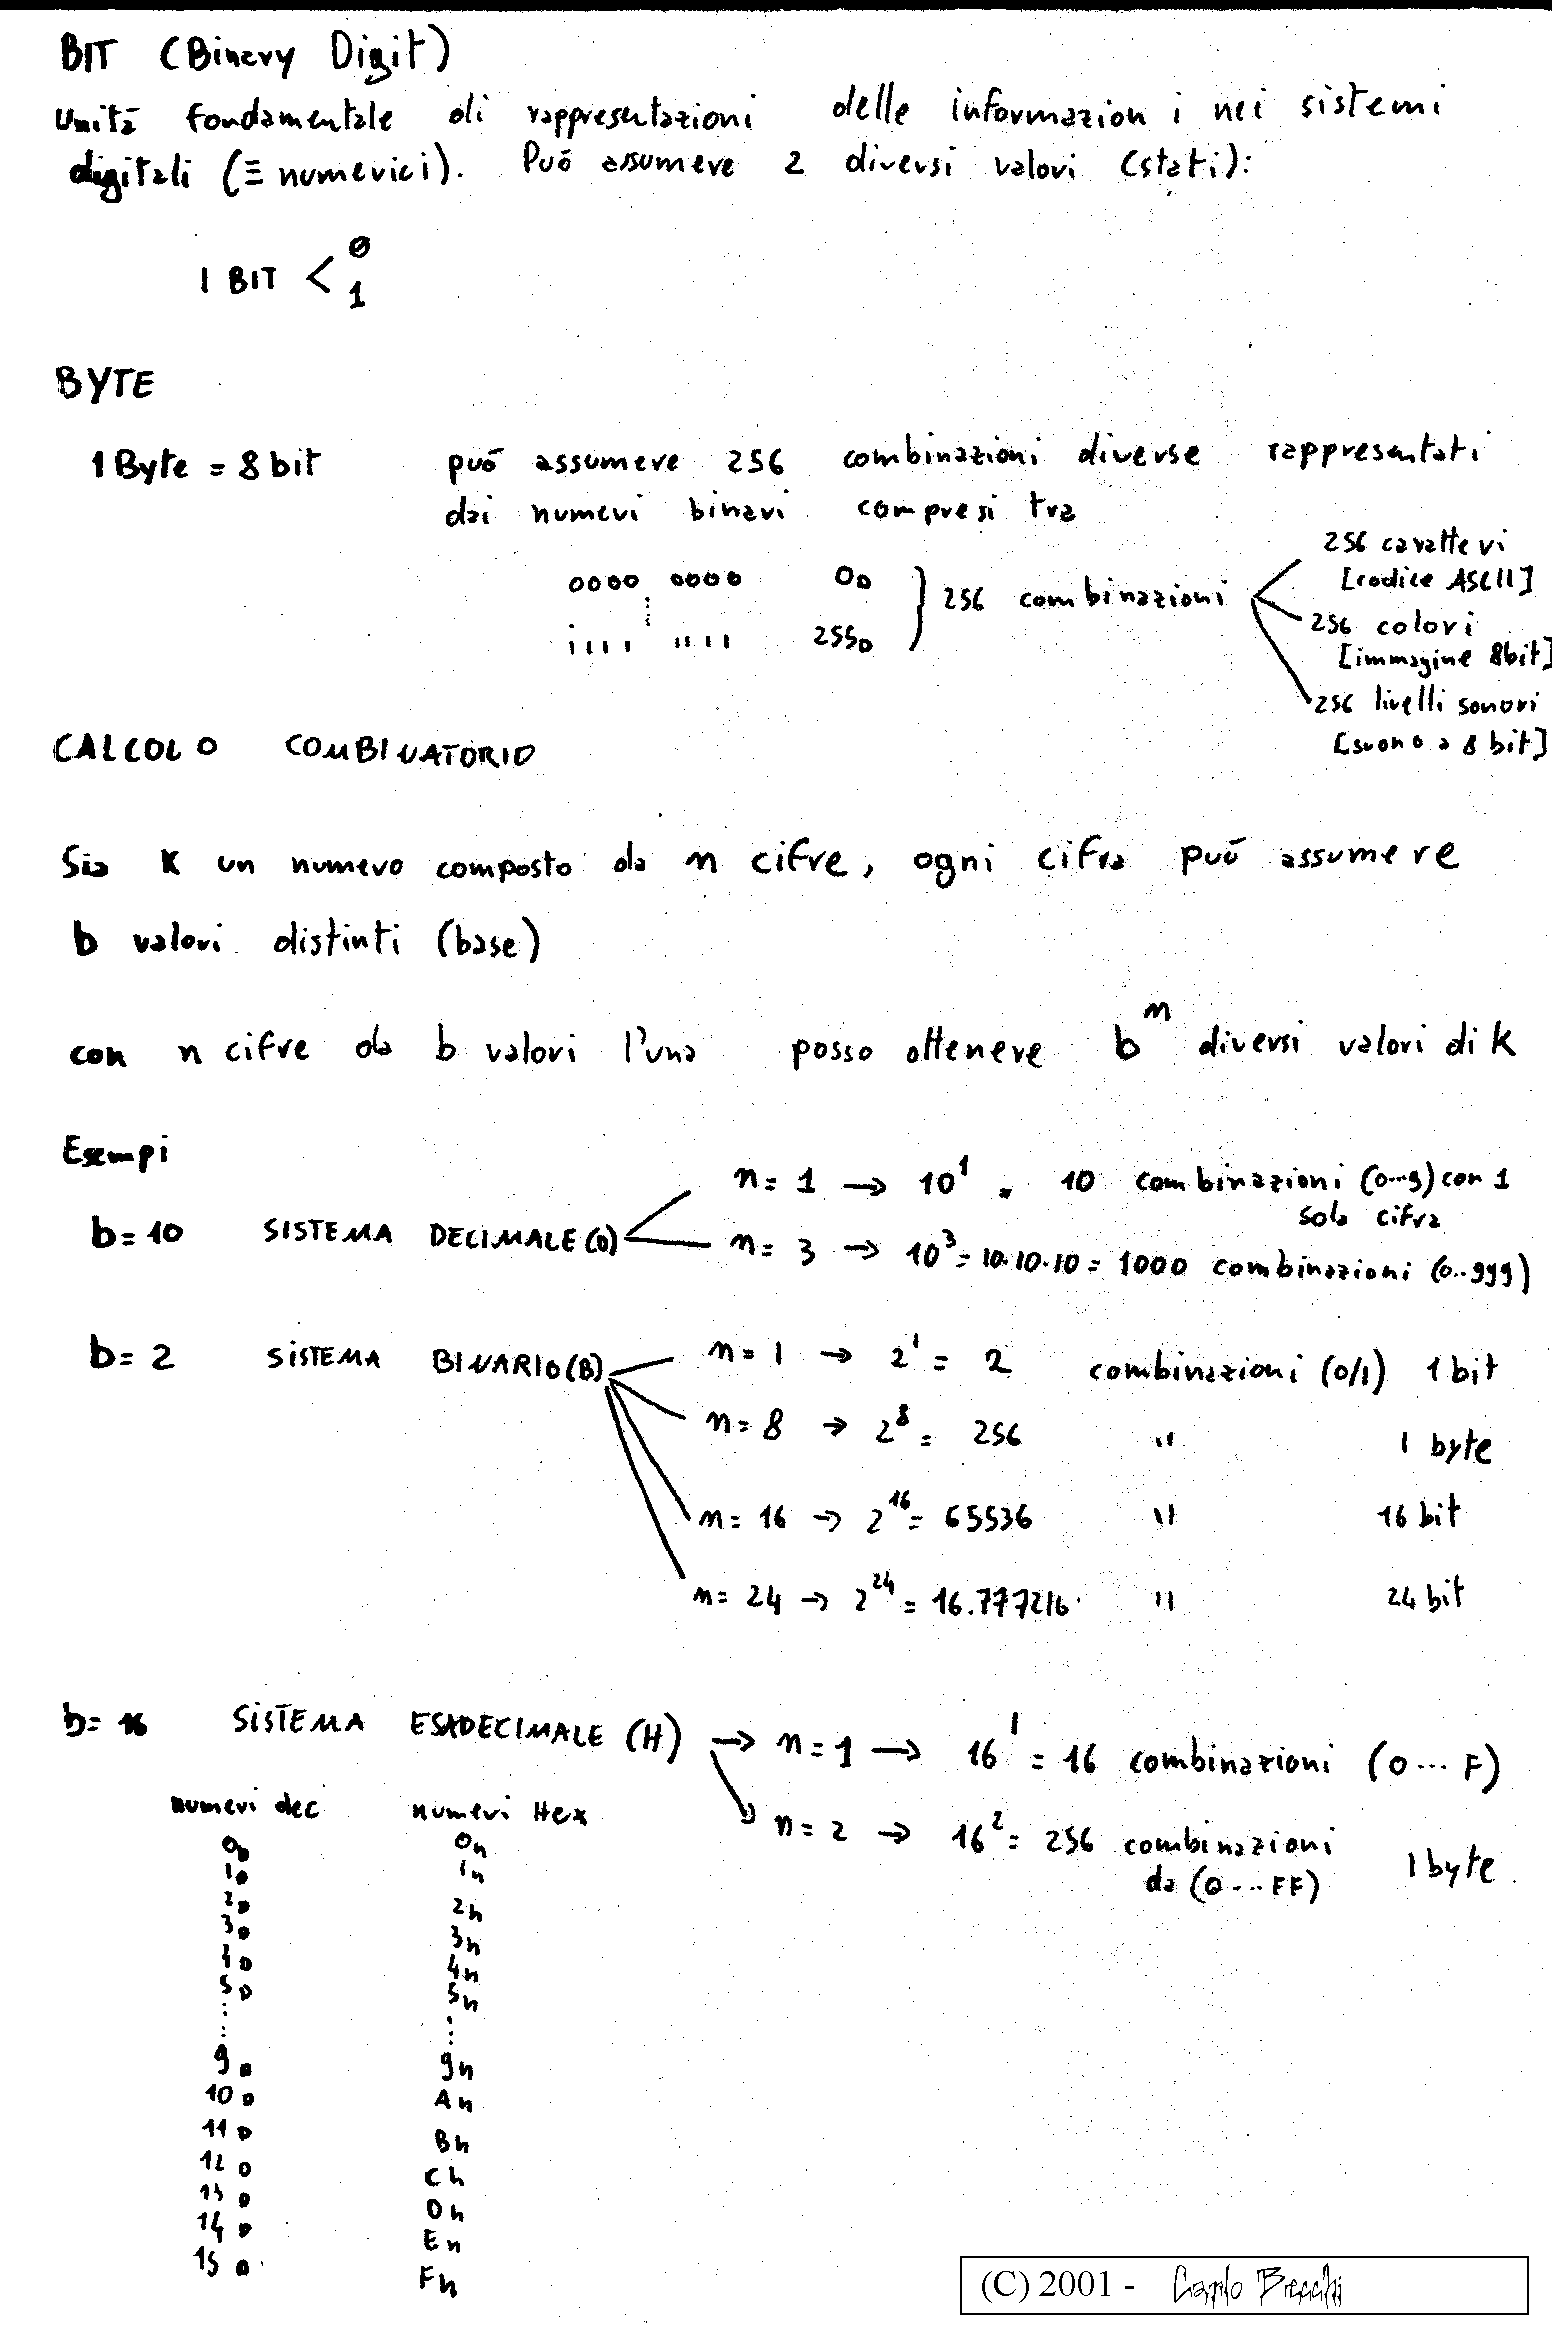 BIT (Binary Digit)
Unità fondamentale di rappresentazioni delle informazioni nei sistemi
digitali (≡ numerici). Può assumere 2 diversi valori (stati):
1 BIT < 0
1
BYTE
1 Byte = 8 bit può assumere 256 combinazioni diverse rappresentati
dai numeri binari compresi tra
0000 0000 0D } 256 combinazioni
1111 1111 255D
256 caratteri
[codice ASCII]
256 colori
[immagine 8bit]
256 livelli sonori
[suono a 8 bit]
CALCOLO COMBINATORIO
Sia K un numero composto da n cifre, ogni cifra può assumere
b valori distinti (base)
con n cifre da b valori l'una posso ottenere bⁿ diversi valori di K
Esempi
b=10 SISTEMA DECIMALE (D)
n= 1 → 10¹ = 10 combinazioni (0...9) con 1
sola cifra
n= 3 → 10³= 10.10.10 = 1000 combinazioni (0..999)
b= 2 SISTEMA BINARIO (B)
n= 1 → 2¹ = 2 combinazioni (0/1) 1 bit
n= 8 → 2⁸ = 256 " 1 byte
n= 16 → 2¹⁶= 65536 " 16 bit
n= 24 → 2²⁴ = 16.777216 " 24 bit
b= 16 SISTEMA ESADECIMALE (H) → n=1 → 16¹ = 16 combinazioni (0 ... F)
n= 2 → 16² = 256 combinazioni 1 byte
da (0 ... FF)
numeri dec numeri Hex
0D 0h
1D 1h
2D 2h
3D 3h
4D 4h
5D 5h
⋮ ⋮
9D 9h
10D Ah
11D Bh
12D Ch
13D Dh
14D Eh
15D Fh
(C) 2001 - Carlo Brecchi